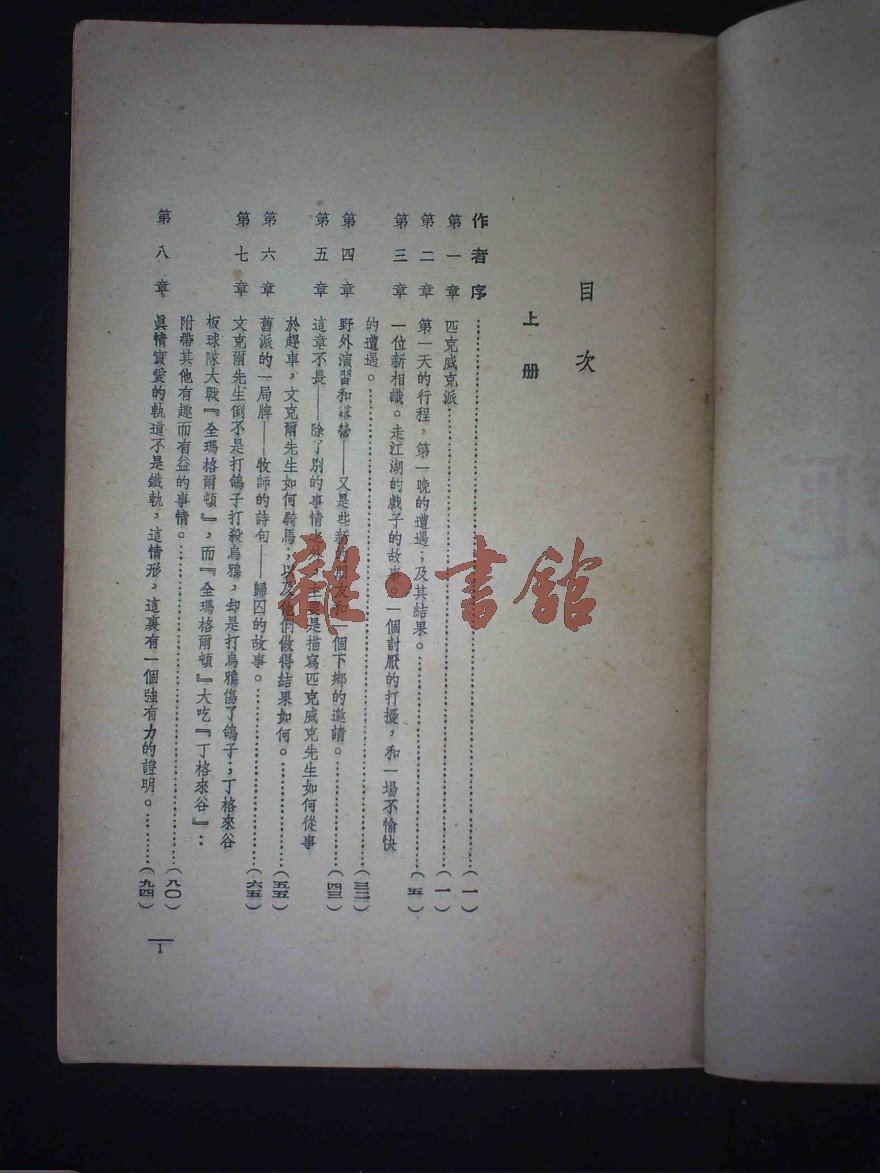 目次
上册
作者序……(一)
第一章 匹克威克派……(一)
第二章 第一天的行程,第一晚的遭遇;及其結果。……(五)
第三章 一位新相識。走江湖的戲子的故事。一個討厭的打擾,和一場不愉快
的遭遇。……(三二)
第四章 野外演習和露營——又是些新的朋友和一個下鄉的邀請。……(四三)
第五章 這章不長——除了別的事情之外,主要是描寫匹克威克先生如何從事
於趕車,文克爾先生如何騎馬;以及他們做得結果如何。……(五五)
第六章 舊派的一局牌——牧師的詩句——歸囚的故事。……(六五)
第七章 文克爾先生倒不是打鴿子打殺烏鴉,却是打烏鴉傷了鴿子;丁格來谷
板球隊大戰『全瑪格爾頓』,而『全瑪格爾頓』大吃『丁格來谷』:
附帶其他有趣而有益的事情。……(八〇)
第八章 眞情實愛的軌道不是鐵軌,這情形,這裏有一個強有力的證明。……(九四)
1
雜·書館